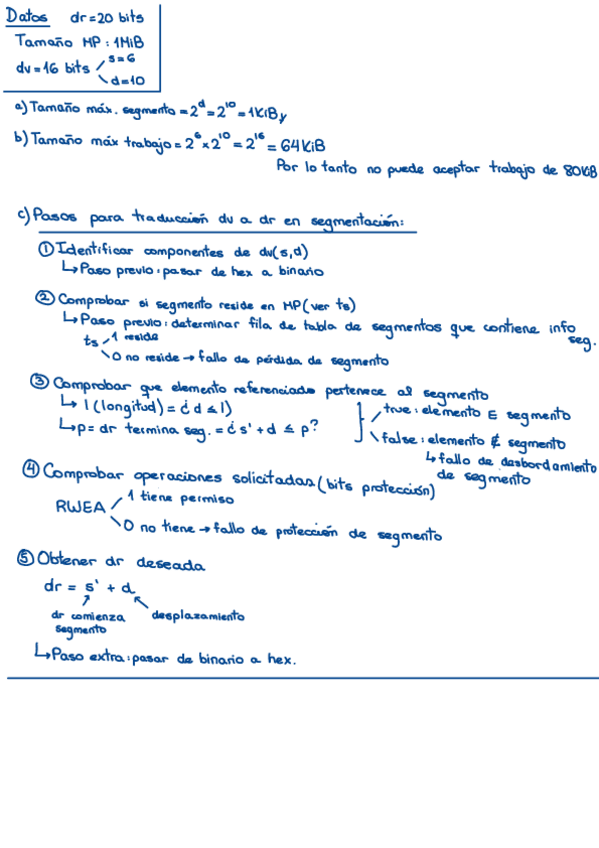 Datos dr=20 bits
Tamaño MP: 1MiB
dv=16 bits s=6
d=10
a) Tamaño máx. segmento = 2^d = 2^10 = 1KiB y
b) Tamaño máx trabajo = 2^6 x 2^10 = 2^16 = 64KiB
Por lo tanto no puede aceptar trabajo de 80KiB
c) Pasos para traducción dv a dr en segmentación:
① Identificar componentes de dv(s,d)
↳ Paso previo: pasar de hex a binario
② Comprobar si segmento reside en MP (ver ts)
↳ Paso previo: determinar fila de tabla de segmentos que contiene info seg.
ts 1 reside
0 no reside → fallo de pérdida de segmento
③ Comprobar que elemento referenciado pertenece al segmento
↳ l (longitud) = ¿ d ≤ l)
↳ p = dr termina seg. = ¿ s' + d ≤ p?
true: elemento ∈ segmento
false: elemento ∉ segmento
↳ fallo de desbordamiento
de segmento
④ Comprobar operaciones solicitadas (bits protección)
RWEA 1 tiene permiso
0 no tiene → fallo de protección de segmento
⑤ Obtener dr deseada
dr = s' + d
dr comienza segmento
desplazamiento
↳ Paso extra: pasar de binario a hex.